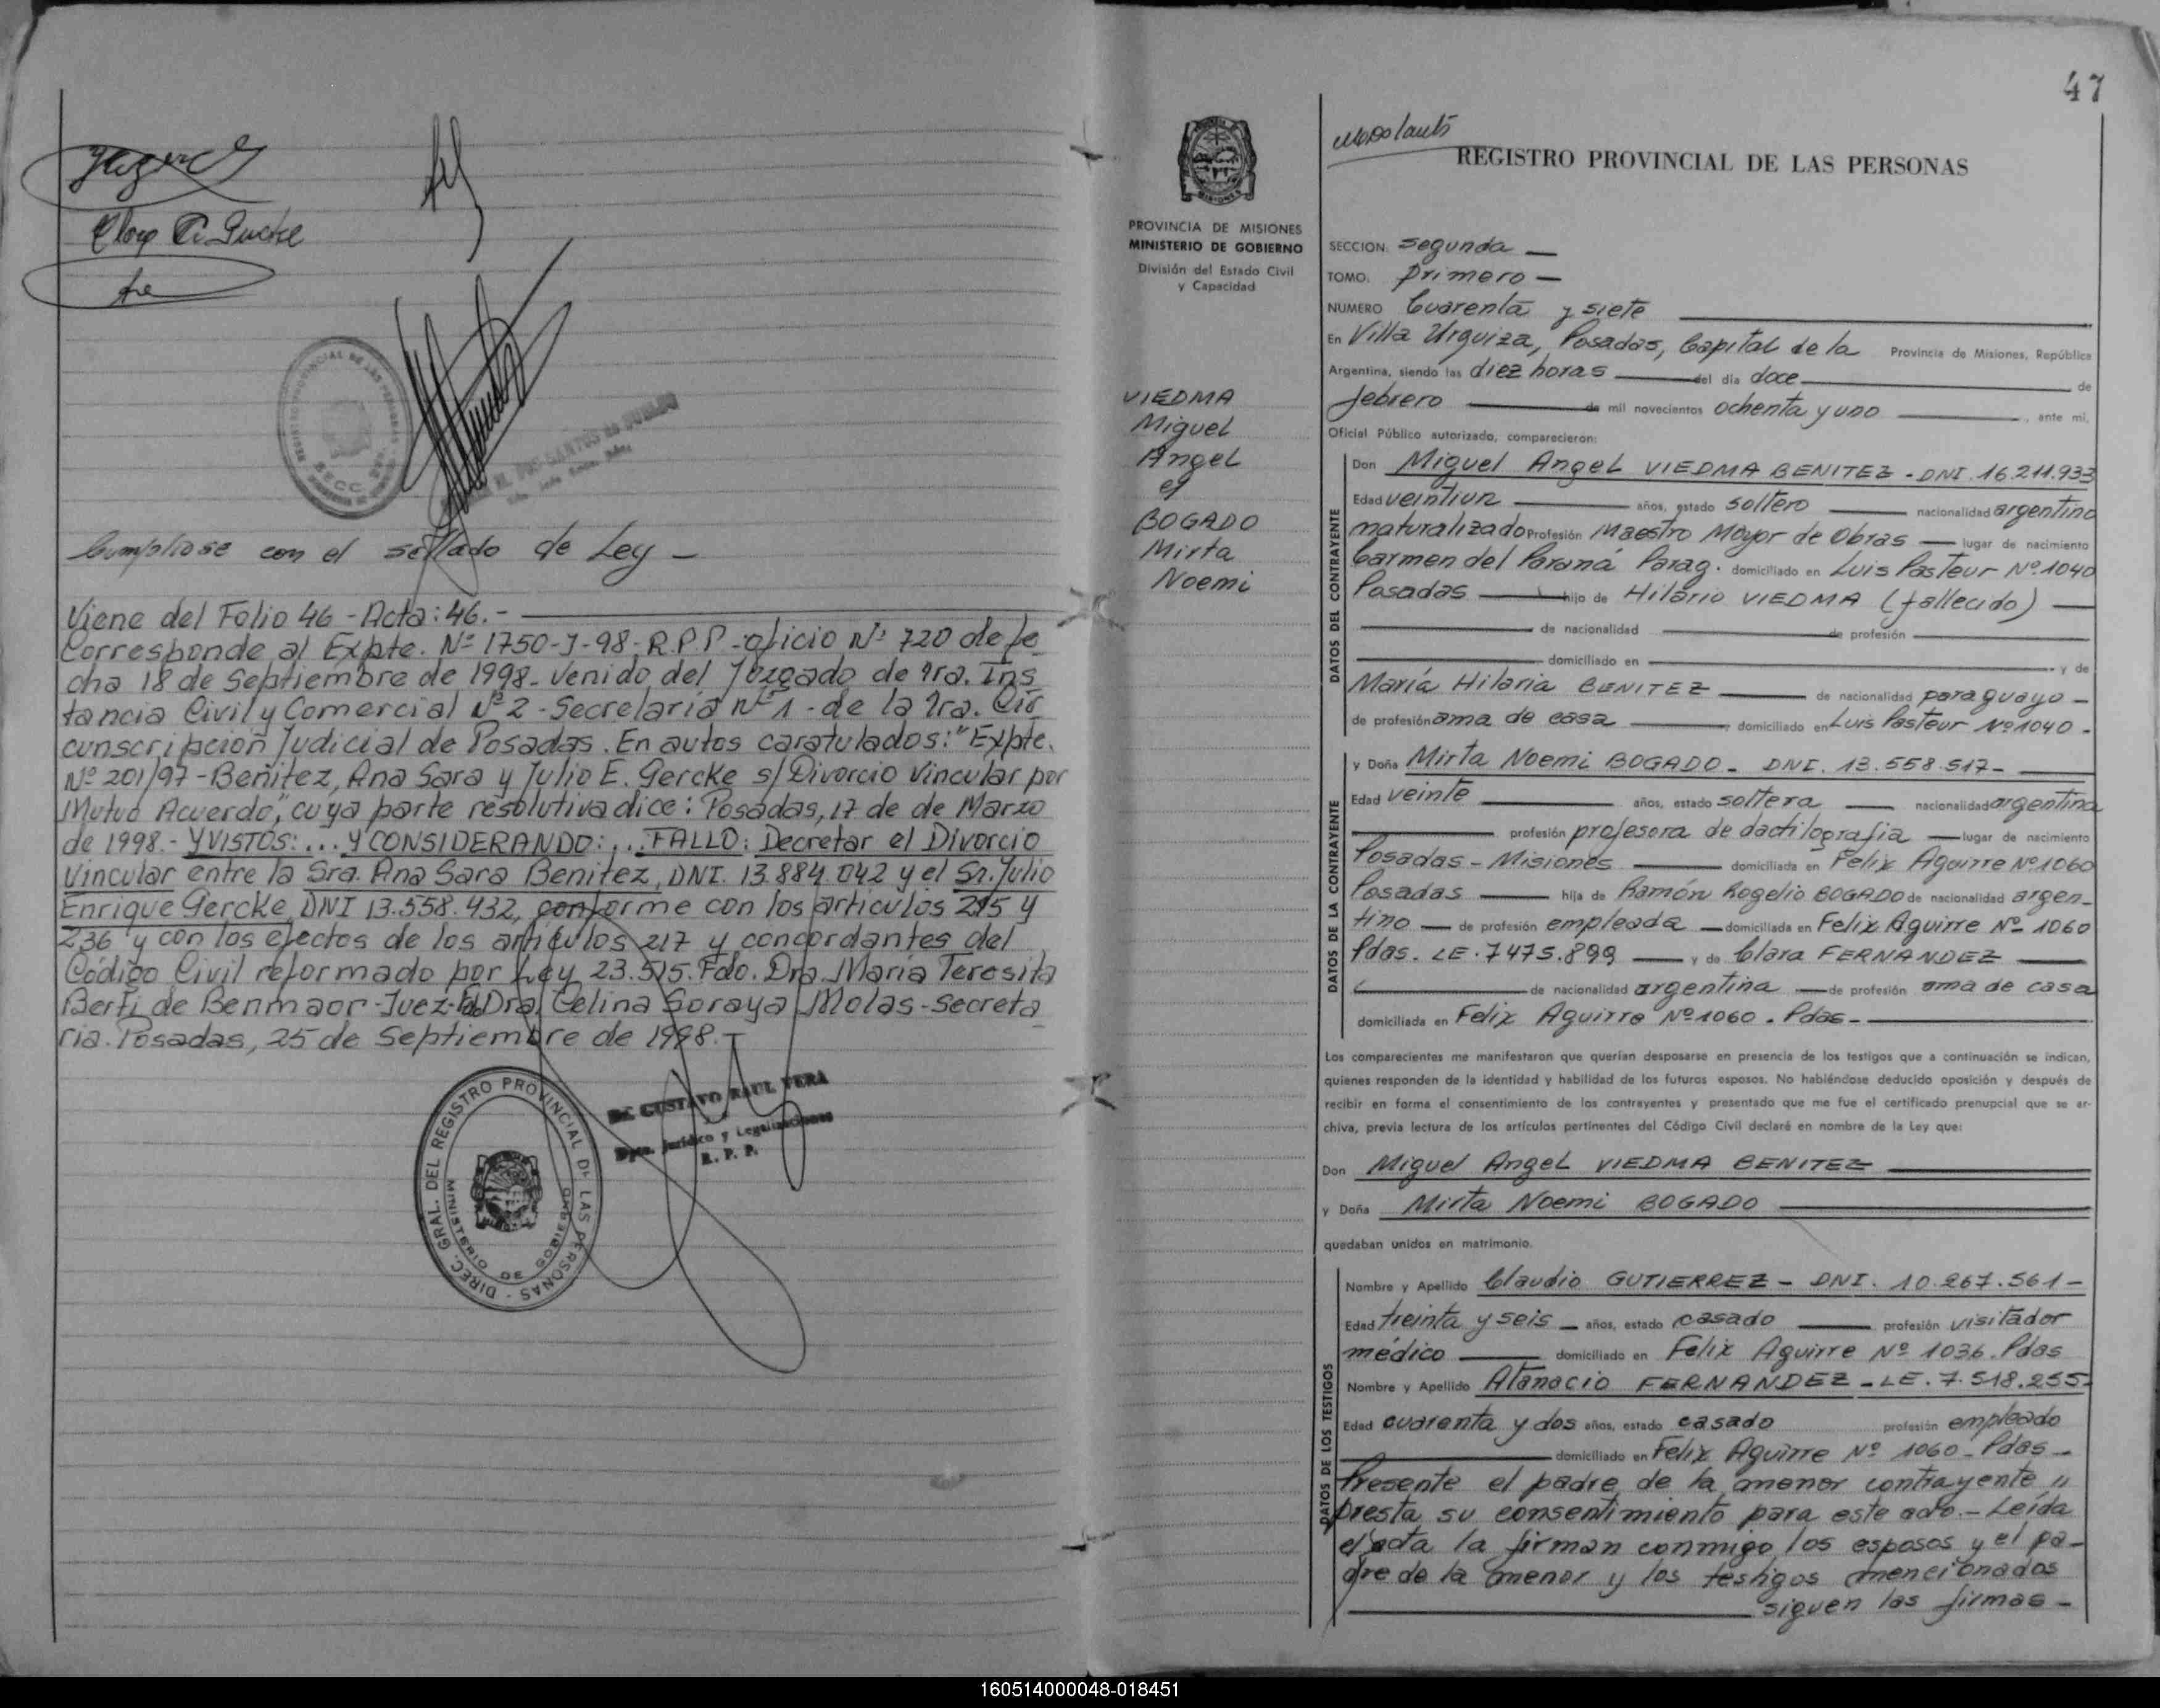 Cumpliose con el sellado de Ley -
Viene del Folio 46 - Acta: 46. -
Corresponde al Expte. Nº 1750-J-98-R.P.P - oficio Nº 720 de fe
cha 18 de Septiembre de 1998- venido del Juzgado de 1ra. Ins
tancia Civil y Comercial Nº 2 - Secretaria nº 1 - de la 1ra. Cir
cunscripción Judicial de Posadas. En autos caratulados: "Expte.
Nº 201/97 - Benitez, Ana Sara y Julio E. Gercke s/ Divorcio Vincular por
Mutuo Acuerdo," cuya parte resolutiva dice: Posadas, 17 de de Marzo
de 1998.- Y VISTOS: ... Y CONSIDERANDO: ... FALLO: Decretar el Divorcio
Vincular entre la Sra. Ana Sara Benitez, DNI. 13.884.042 y el Sr. Julio
Enrique Gercke, DNI 13.558.432, conforme con los articulos 215 y
236 y con los efectos de los articulos 217 y concordantes del
Código Civil reformado por Ley 23.515. Fdo. Dra. Maria Teresita
Berti de Benmaor - Juez - Fdo Dra. Celina Soraya Molas - secreta
ria. Posadas, 25 de Septiembre de 1998.-
DIREC. GRAL. DEL REGISTRO PROVINCIAL DE LAS PERSONAS -
MINISTERIO DE GOBIERNO
Dr. GUSTAVO RAUL VERA
Dpto. Jurídico y Legalizaciones
R. P. P.
47
REGISTRO PROVINCIAL DE LAS PERSONAS
PROVINCIA DE MISIONES
MINISTERIO DE GOBIERNO
División del Estado Civil
y Capacidad
VIEDMA
Miguel
Angel
c/
BOGADO
Mirta
Noemi
SECCION: segunda —
TOMO: primero —
NUMERO Cuarenta y siete
En Villa Urquiza, Posadas, Capital de la Provincia de Misiones, República
Argentina, siendo las diez horas del día doce de
febrero de mil novecientos ochenta y uno, ante mi,
Oficial Público autorizado, comparecieron:
DATOS DEL CONTRAYENTE
Don Miguel Angel VIEDMA BENITEZ - DNI. 16.211.933
Edad veintiun años, estado soltero nacionalidad argentino
naturalizado Profesión Maestro Mayor de Obras — lugar de nacimiento
Carmen del Paraná Parag. domiciliado en Luis Pasteur Nº 1040
Posadas hijo de Hilario VIEDMA (fallecido) —
de nacionalidad de profesión
domiciliado en y de
María Hilaria BENITEZ de nacionalidad paraguaya -
de profesión ama de casa domiciliado en Luis Pasteur Nº 1040 -
DATOS DE LA CONTRAYENTE
y Doña Mirta Noemi BOGADO - DNI. 13.558.517 -
Edad veinte años, estado soltera nacionalidad argentina
profesión profesora de dactilografia — lugar de nacimiento
Posadas - Misiones domiciliada en Felix Aguirre Nº 1060
Posadas hija de Ramón Rogelio BOGADO de nacionalidad argen-
tino — de profesión empleado — domiciliada en Felix Aguirre Nº 1060
Pdas. LE. 7475.899 y de Clara FERNANDEZ
de nacionalidad argentina — de profesión ama de casa
domiciliada en Felix Aguirre Nº 1060 - Pdas -
Los comparecientes me manifestaron que querían desposarse en presencia de los testigos que a continuación se indican,
quienes responden de la identidad y habilidad de los futuros esposos. No habiéndose deducido oposición y después de
recibir en forma el consentimiento de los contrayentes y presentado que me fue el certificado prenupcial que se ar-
chiva, previa lectura de los artículos pertinentes del Código Civil declaré en nombre de la Ley que:
Don Miguel Angel VIEDMA BENITEZ
y Doña Mirta Noemi BOGADO
quedaban unidos en matrimonio.
DATOS DE LOS TESTIGOS
Nombre y Apellido Claudio GUTIERREZ - DNI. 10.267.561 -
Edad treinta y seis — años, estado casado profesión visitador
médico domiciliado en Felix Aguirre Nº 1036. Pdas
Nombre y Apellido Atanacio FERNANDEZ - LE. 7.518.255-
Edad cuarenta y dos años, estado casado profesión empleado
domiciliado en Felix Aguirre Nº 1060 - Pdas -
Presente el padre de la menor contrayente "
presta su consentimiento para este acto. - Leída
el acta la firman conmigo, los esposos y el pa-
dre de la menor y los testigos mencionados
siguen las firmas -
160514000048-018451